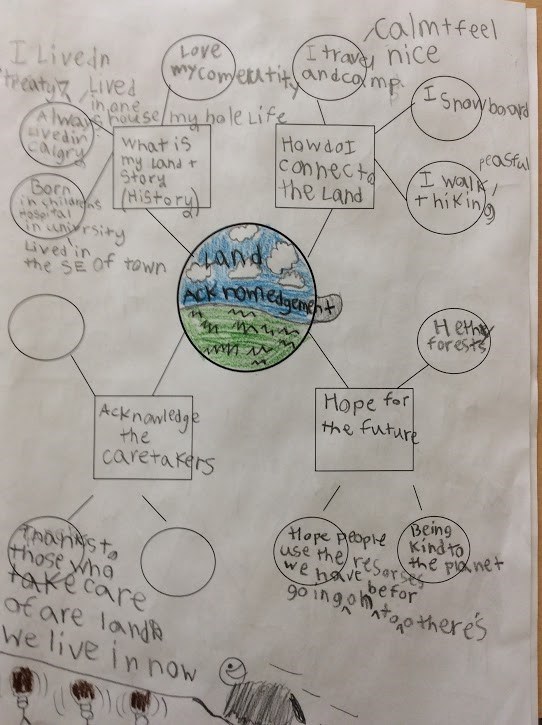 I Lived in
treaty 7
Lived
in one
house my hole Life
Always
Lived in
Calgry
Born
in childrens
Hospital
in university
Lived in
the SE of town
Love
my comeutity
What is
my Land +
Story
(History)
Calm + feel
nice
I travel
and camp
I Snowboard
peasful
I walk
+ hiking
How do I
connect to
the Land
Land
Acknowledgement
Acknowledge
the
caretakers
Thanks to
those who
take care
of are land
we live in now
Hope for
the future
forests
Hope people
use the resorses
we have befor
going on to o there's
Being
kind to
the planet